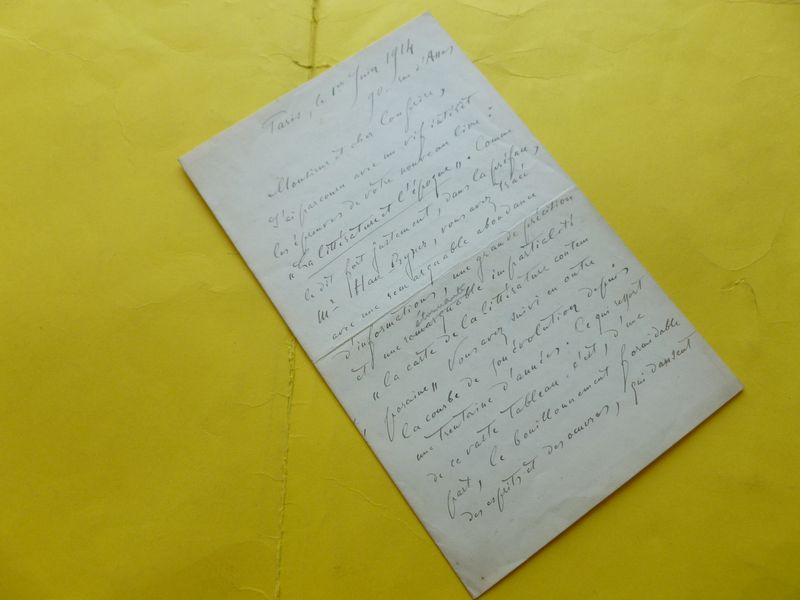 Paris, le 1er Juin 1914
90, rue d'Assas
Monsieur et cher Confrère,
J'ai parcouru avec un vif intérêt
les épreuves de votre nouveau livre :
"La littérature et l'époque". Comme
le dit fort justement, dans la préface,
Mr Han Ryner, vous avez tracé
avec une remarquable abondance
d'informations, une grande précision
et une étonnante impartialité
"la carte de la littérature contem
poraine" Vous avez suivi en outre
la courbe de son évolution depuis
une trentaine d'années. Ce qui ressort
de ce vaste tableau c'est, d'une
part, le bouillonnement formidable
des esprits et des oeuvres, qui